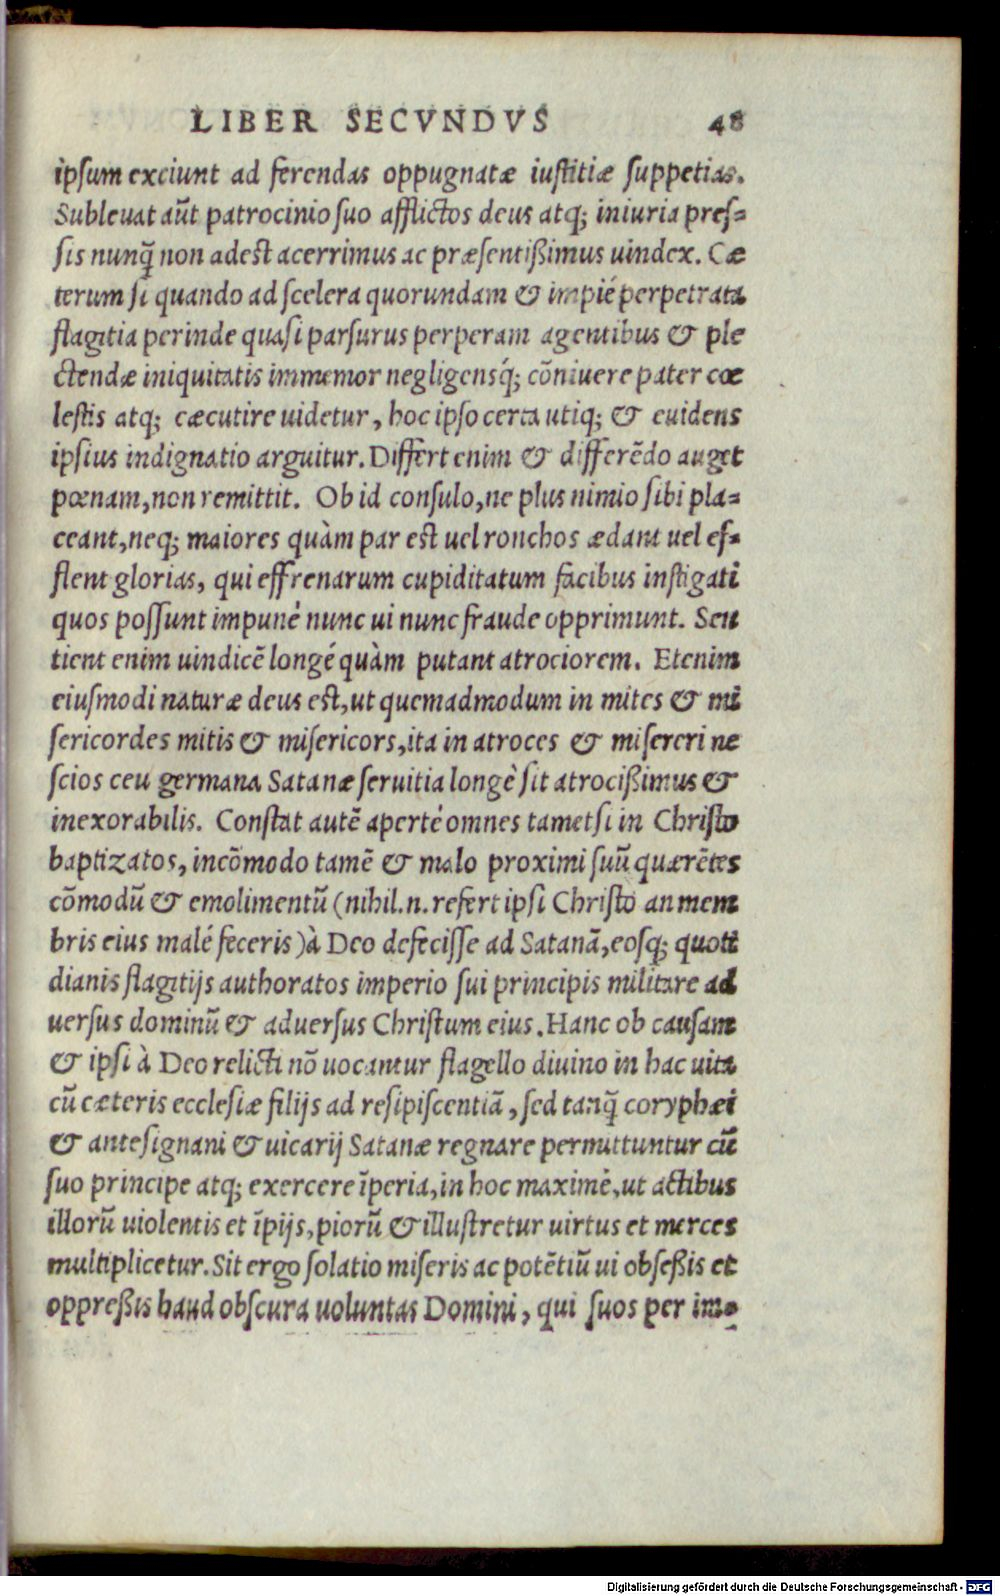 LIBER SECVNDVS 48
ipsum exciunt ad ferendas oppugnatæ iustitiæ suppetias.
Subleuat aũt patrocinio suo afflictos deus atq; iniuria pres=
sis nunq̃ non adest acerrimus ac præsentißimus uindex. Cæ
terum si quando ad scelera quorundam & impié perpetrata
flagitia perinde quasi parsurus perperam agentibus & ple
ctendæ iniquitatis immemor negligensq́; cõniuere pater cœ
lestis atq; cæcutire uidetur, hoc ipso certa utiq; & euidens
ipsius indignatio arguitur. Differt enim & differẽdo auget
pœnam, non remittit. Ob id consulo, ne plus nimio sibi pla=
ceant, neq; maiores quàm par est uel ronchos ædant uel ef=
flent glorias, qui effrenarum cupiditatum facibus instigati
quos possunt impuné nunc ui nunc fraude opprimunt. Sen
tient enim uindicẽ longé quàm putant atrociorem. Etenim
eiusmodi naturæ deus est, ut quemadmodum in mites & mi
sericordes mitis & misericors, ita in atroces & misereri ne
scios ceu germana Satanæ seruitia longè sit atrocißimus &
inexorabilis. Constat autẽ aperté omnes tametsi in Christo
baptizatos, incõmodo tamẽ & malo proximi suũ quærẽtes
cõmodũ & emolimentũ (nihil.n.refert ipsi Christo an mem
bris eius malé feceris) à Deo defecisse ad Satanã, eosq; quoti
dianis flagitijs authoratos imperio sui principis militare ad
uersus dominũ & aduersus Christum eius. Hanc ob causam
& ipsi à Deo relicti nõ uocantur flagello diuino in hac uita
cũ cæteris ecclesiæ filijs ad resipiscentiã, sed tanq̃ coryphæi
& antesignani & uicarij Satanæ regnare permittuntur cũ
suo principe atq; exercere ĩperia, in hoc maximé, ut actibus
illorũ uiolentis et ĩpijs, piorũ & illustretur uirtus et merces
multiplicetur. Sit ergo solatio miseris ac potẽtiũ ui obseßis et
oppreßis haud obscura uoluntas Domini, qui suos per im=
Digitalisierung gefördert durch die Deutsche Forschungsgemeinschaft - DFG